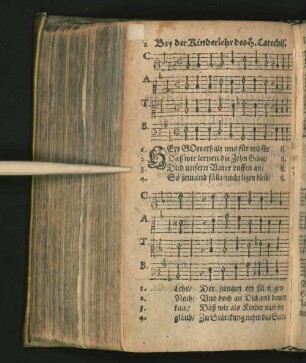 2. Bey der Kinderlehr des H. Catechis.
C.
A.
T.
B.
1. HErr GOtt erhalt uns für und für
2. Daß wir lernen die Zehn Gebot
3. Dich unsern Vater ruffen an
4. So jemand fällt nicht ligen bleib
C.
A.
T.
B.
1. Lehr/ Der jungen
2. Noth/ Und doch an Dich und
3. kan/ Daß wir als Kinder nach der
4. glaub/ Zu Stärckung